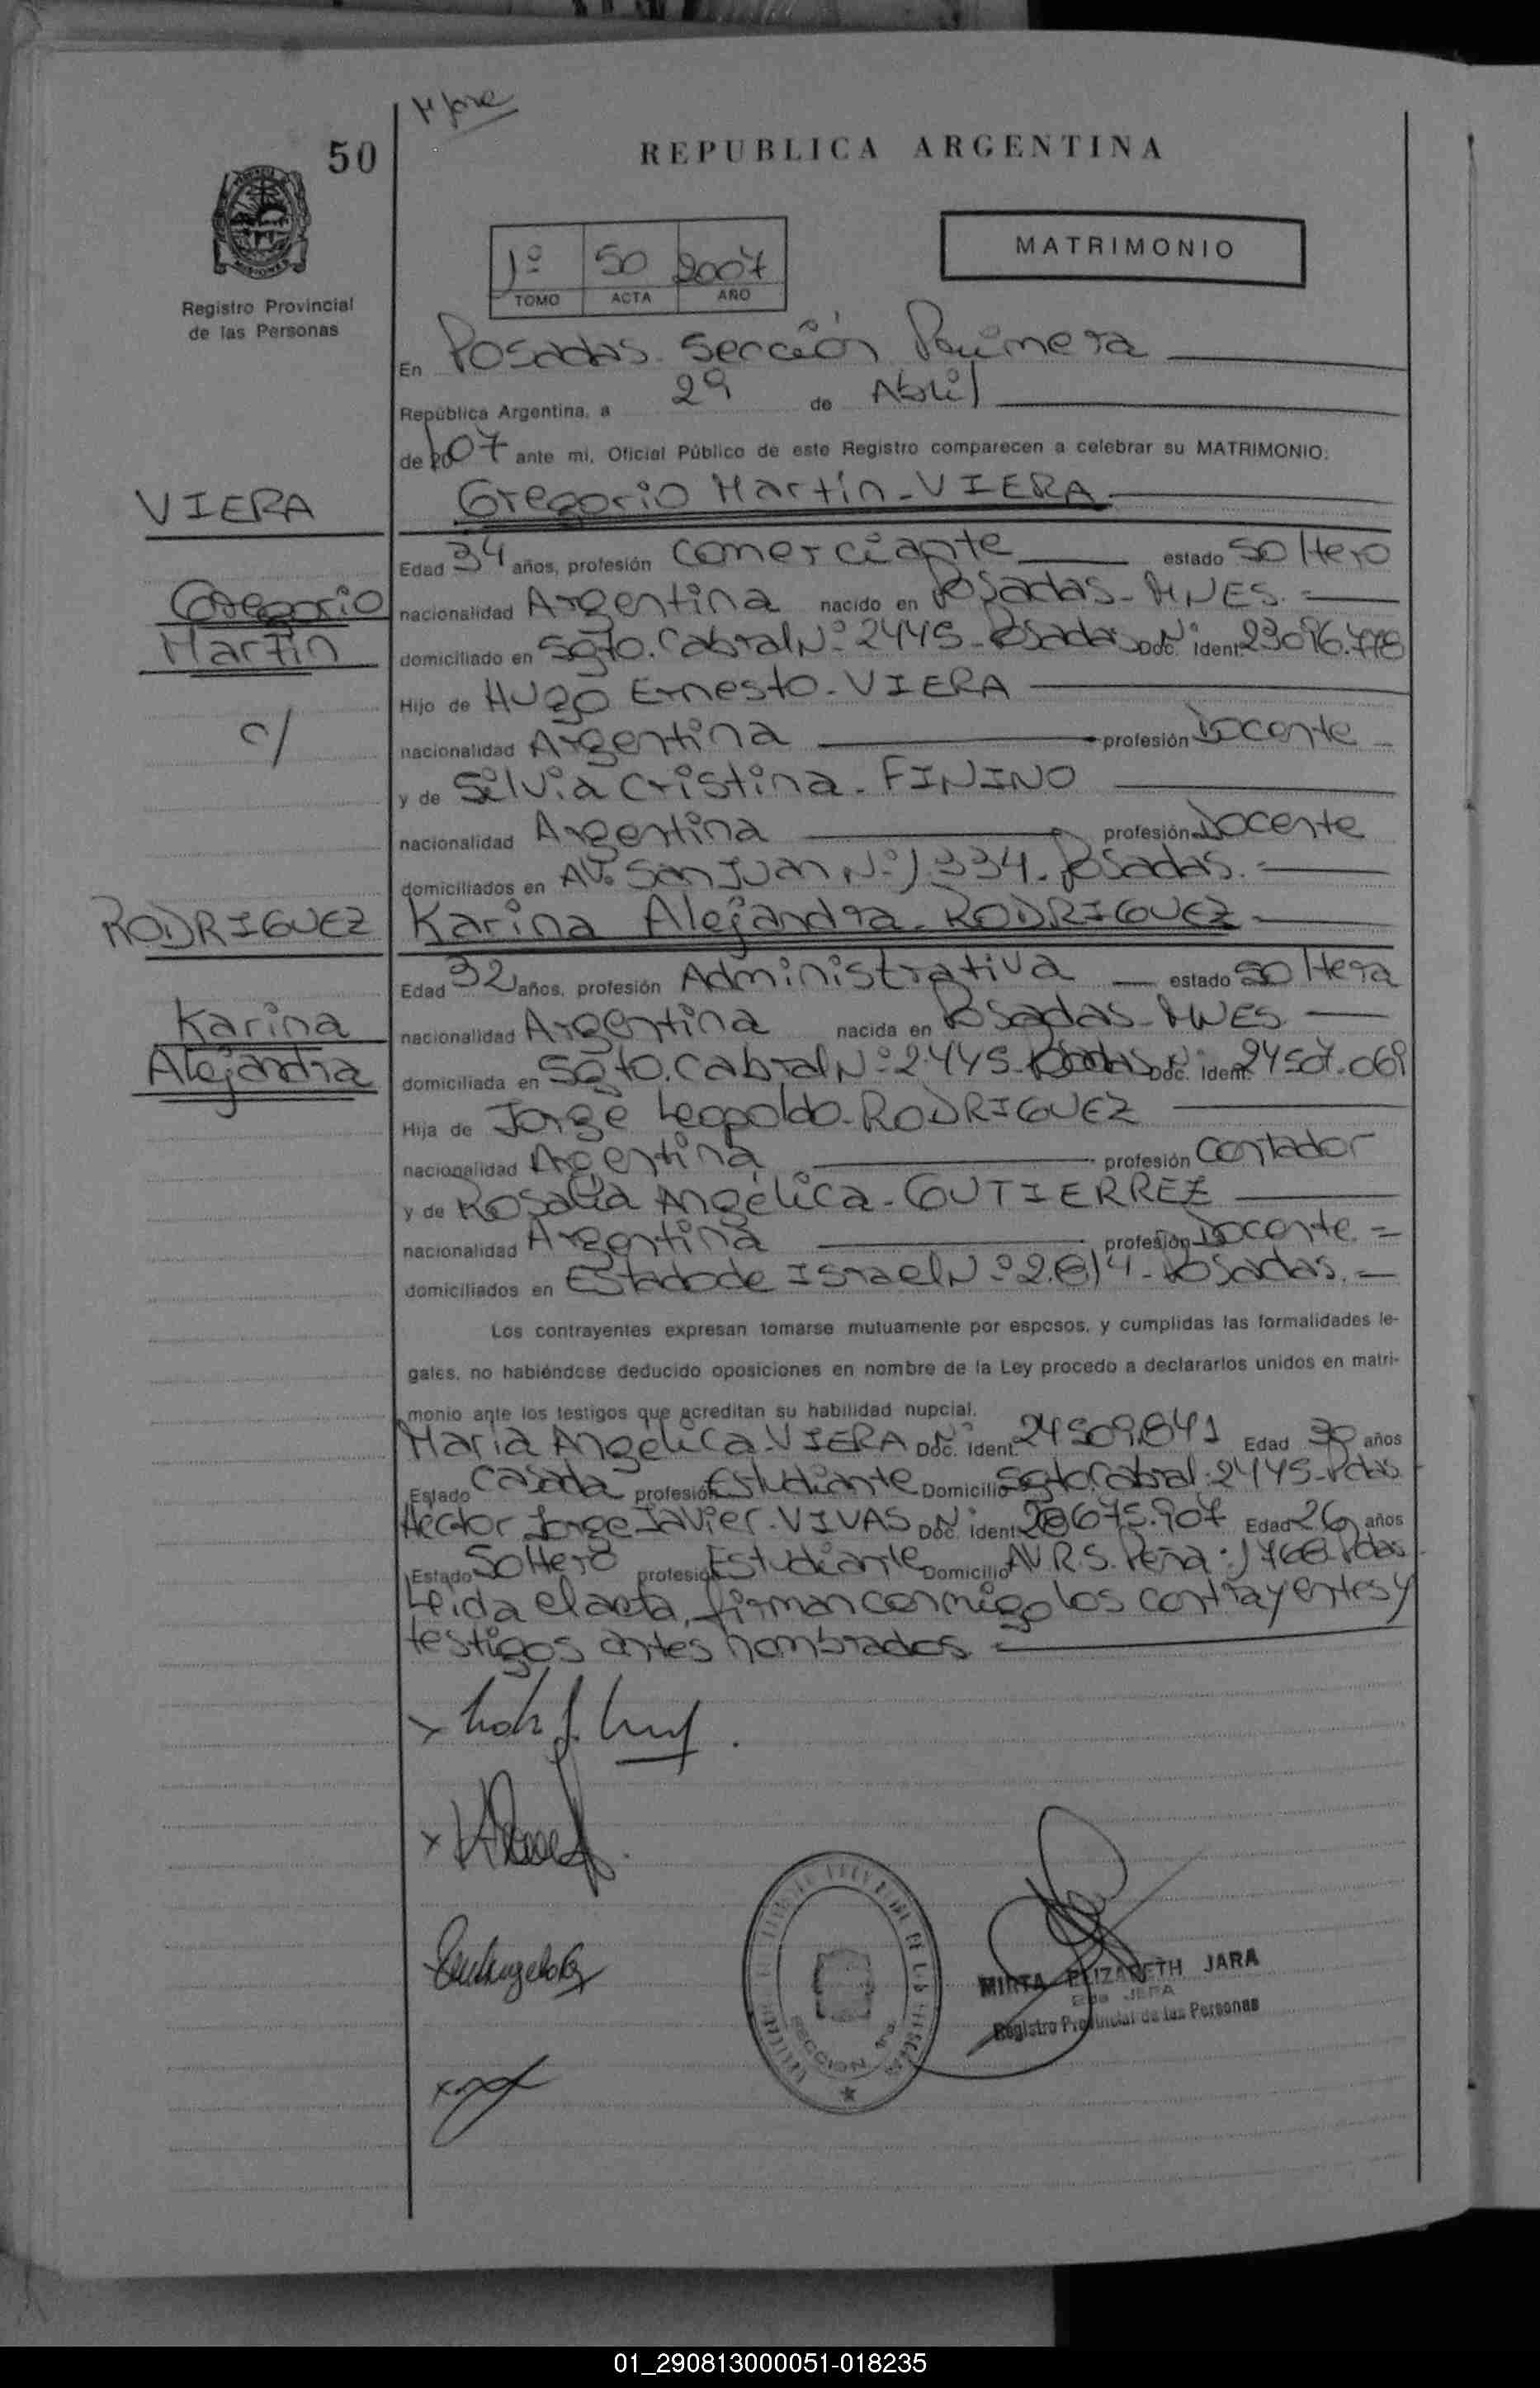 50
REPUBLICA ARGENTINA
MATRIMONIO
1º 50 2007
TOMO ACTA AÑO
Registro Provincial
de las Personas
En Posadas. Sección Primera
República Argentina, a 29 de Abril
de 2007 ante mi, Oficial Público de este Registro comparecen a celebrar su MATRIMONIO:
VIERA
Gregorio Martín - VIERA
Edad 34 años, profesión comerciante estado soltero
Gregorio
Martín
nacionalidad Argentina nacido en Posadas - MNES.
domiciliado en Sgto. Cabral Nº 2445 - Posadas Doc. Nº Ident. 23.096.778
Hijo de Hugo Ernesto - VIERA
c/
nacionalidad Argentina profesión Docente
y de Silvia Cristina - FININO
nacionalidad Argentina profesión Docente
domiciliados en AV. San Juan Nº 1.334 - Posadas.
RODRIGUEZ
Karina Alejandra - RODRIGUEZ
Edad 32 años, profesión Administrativa estado soltera
Karina
Alejandra
nacionalidad Argentina nacida en Posadas - MNES
domiciliada en Sgto. Cabral Nº 2.445 - Posadas Doc. Nº Ident. 24.507.069
Hija de Jorge Leopoldo - RODRIGUEZ
nacionalidad Argentina profesión Contador
y de Rosalia Angélica - GUTIERREZ
nacionalidad Argentina profesión Docente =
domiciliados en Estado de Israel Nº 2.814 - Posadas. =
Los contrayentes expresan tomarse mutuamente por esposos, y cumplidas las formalidades le-
gales, no habiéndose deducido oposiciones en nombre de la Ley procedo a declararlos unidos en matri-
monio ante los testigos que acreditan su habilidad nupcial.
María Angélica - VIERA Doc. Nº Ident. 24.509.841 Edad 30 años
Estado Casada profesión Estudiante Domicilio Sgto. Cabral. 2445 - Pdas
Héctor Jorge Javier - VIVAS Doc. Nº Ident. 28.675.907 Edad 26 años
Estado Soltero profesión Estudiante Domicilio AV. R.S. Peña : 1768 - Pdas
Leida el acta, firman conmigo los contrayentes y
testigos antes nombrados
MIRTA ELIZABETH JARA
Registro Provincial de las Personas
SECCION
01_290813000051-018235